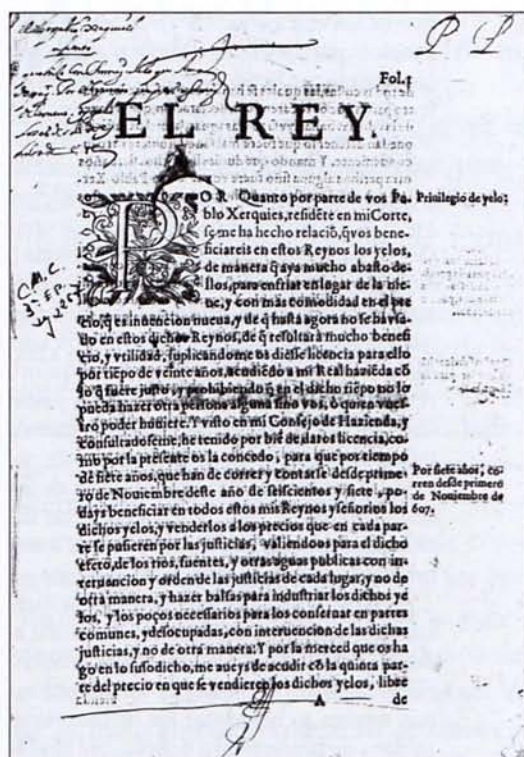 P P
Fol. 1
EL REY.
POR Quanto por parte de vos Pa-
blo Xerquies, residẽte en mi Corte,
se me ha hecho relaciõ, q̃ vos bene-
ficiareis en estos Reynos los yelos,
de manera q̃ aya mucho abasto de-
llos, para enfriar en lugar de la nie-
ue, y con mas comodidad en el pre
cio, q̃ es inuencion nueua, y de q̃ hasta agora no se ha vsa-
do en estos dichos Reynos, de q̃ resultarà mucho benefi
cio, y vtilidad, suplicandome os diesse licencia para ello
por tiẽpo de veinte años, acudiẽdo a mi Real haziẽda cõ
lo q̃ fuere justo, y prohibiendo q̃ en el dicho tiẽpo no lo
pueda hazer otra persona alguna sino vos, ò quien vues-
tro poder huuiere. Y visto en mi Consejo de Hazienda, y
consultadoseme, he tenido por biẽ de daros licencia, co-
mo por la presente os la concedo, para que por tiempo
de siete años, que han de correr y contarse desde prime-
ro de Nouiembre deste año de seiscientos y siete, po-
days beneficiar en todos estos mis Reynos y señorios los
dichos yelos, y venderlos a los precios que en cada par-
te se pusieren por las justicias, valiendoos para el dicho
efeto, de los rios, fuentes, y otras aguas publicas con in-
teruencion y orden de las justicias de cada lugar, y no de
otra manera, y hazer balsas para industriar los dichos ye
los, y los poços necessarios para los conseruar en partes
comunes, y desocupadas, con interuencion de las dichas
justicias, y no de otra manera: Y por la merced que os ha
go en lo susodicho, me aueys de acudir cõ la quinta par-
te del precio en que se vendieren los dichos yelos, libre
A de
Priuilegio de yelo;
Por siete años, co-
rren desde primero
de Nouiembre de
607.
C.M.C.
3ª EP.